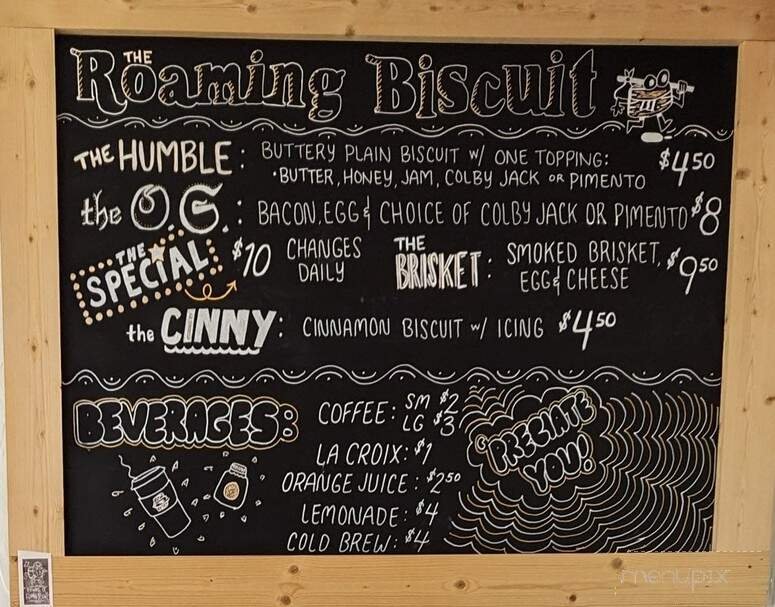 THE
Roaming Biscuit
THE HUMBLE: BUTTERY PLAIN BISCUIT w/ ONE TOPPING: $4.50
•BUTTER, HONEY, JAM, COLBY JACK OR PIMENTO
the OG.: BACON, EGG & CHOICE OF COLBY JACK OR PIMENTO $8
THE SPECIAL $10 CHANGES DAILY
THE BRISKET: SMOKED BRISKET, EGG & CHEESE $9.50
the CINNY: CINNAMON BISCUIT w/ ICING $4.50
BEVERAGES:
COFFEE: SM $2
LG $3
LA CROIX: $1
ORANGE JUICE: $2.50
LEMONADE: $4
COLD BREW: $4
'PRECIATE YOU!
menupix